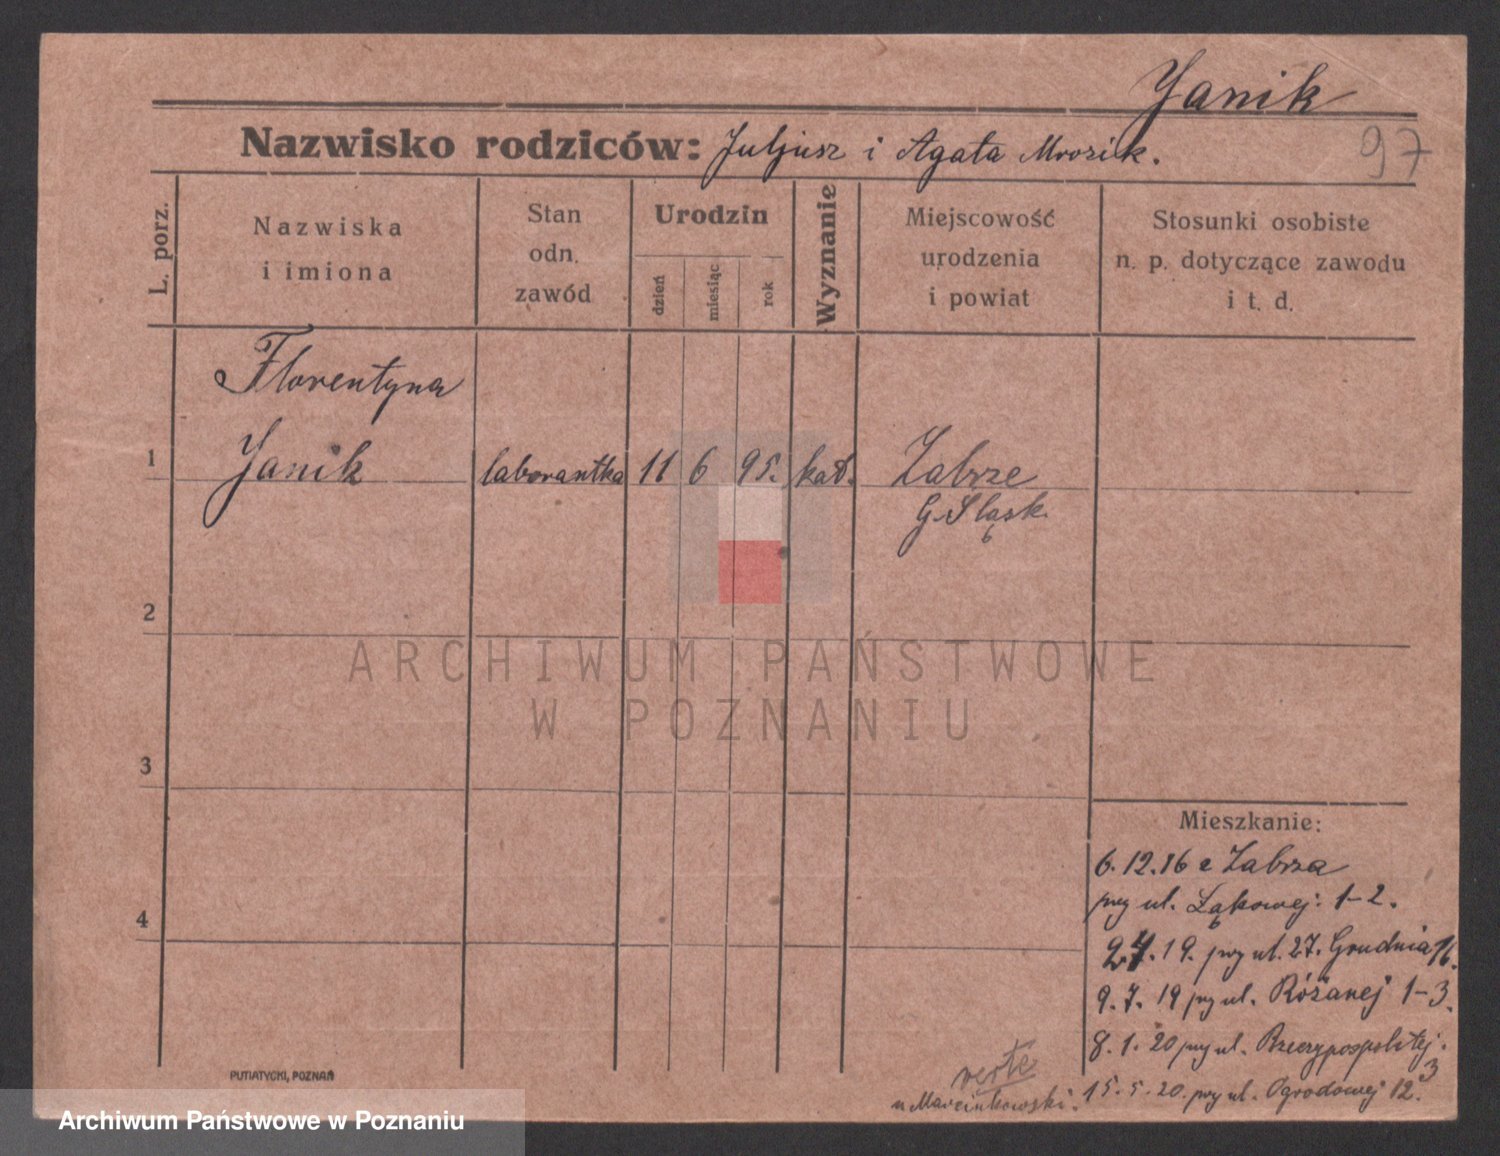 Yanik
97
Nazwisko rodziców: Juljusz i Agata Mrozik.
L. porz.
Nazwiska
i imiona
Stan
odn.
zawód
Urodzin
dzień
miesiąc
rok
Wyznanie
Miejscowość
urodzenia
i powiat
Stosunki osobiste
n. p. dotyczące zawodu
i t. d.
Florentyna
1 Yanik laborantka 11 6 95. kat. Zabrze
G. Sląsk.
2
ARCHIWUM PAŃSTWOWE
W POZNANIU
3
Mieszkanie:
6.12.16 z Zabrza
przy ul. Łąkowej: 1-2.
4
2.7.19. przy ul. 27. Grudnia 16.
9.7.19 przy ul. Różanej 1-3.
8.1.20 przy ul. Rzeczypospolitej.
3
verte
u Marcinkowski. 15.5.20. przy ul. Ogrodowej 12.
PUTIATYCKI, POZNAŃ
Archiwum Państwowe w Poznaniu